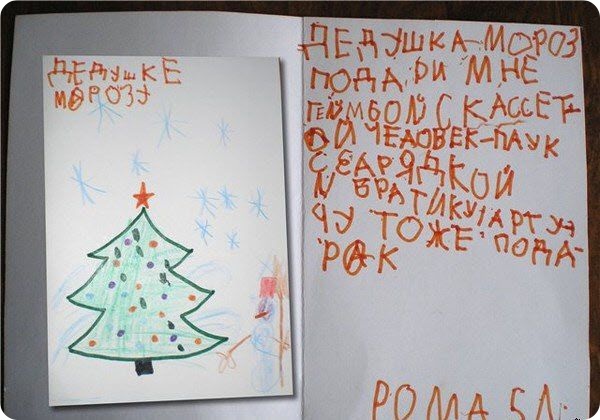 ДЕДУШКЕ
МОРОЗУ
ДЕДУШКА-МОРОЗ
ПОДАРИ МНЕ
ГЕЙМБОЙ С КАССЕТ-
ОЙ ЧЕЛОВЕК-ПАУК
С ЗАРЯДКОЙ
И БРАТИКУ
ТОЖЕ ПОДА-
РОК
РОМА 5Л.